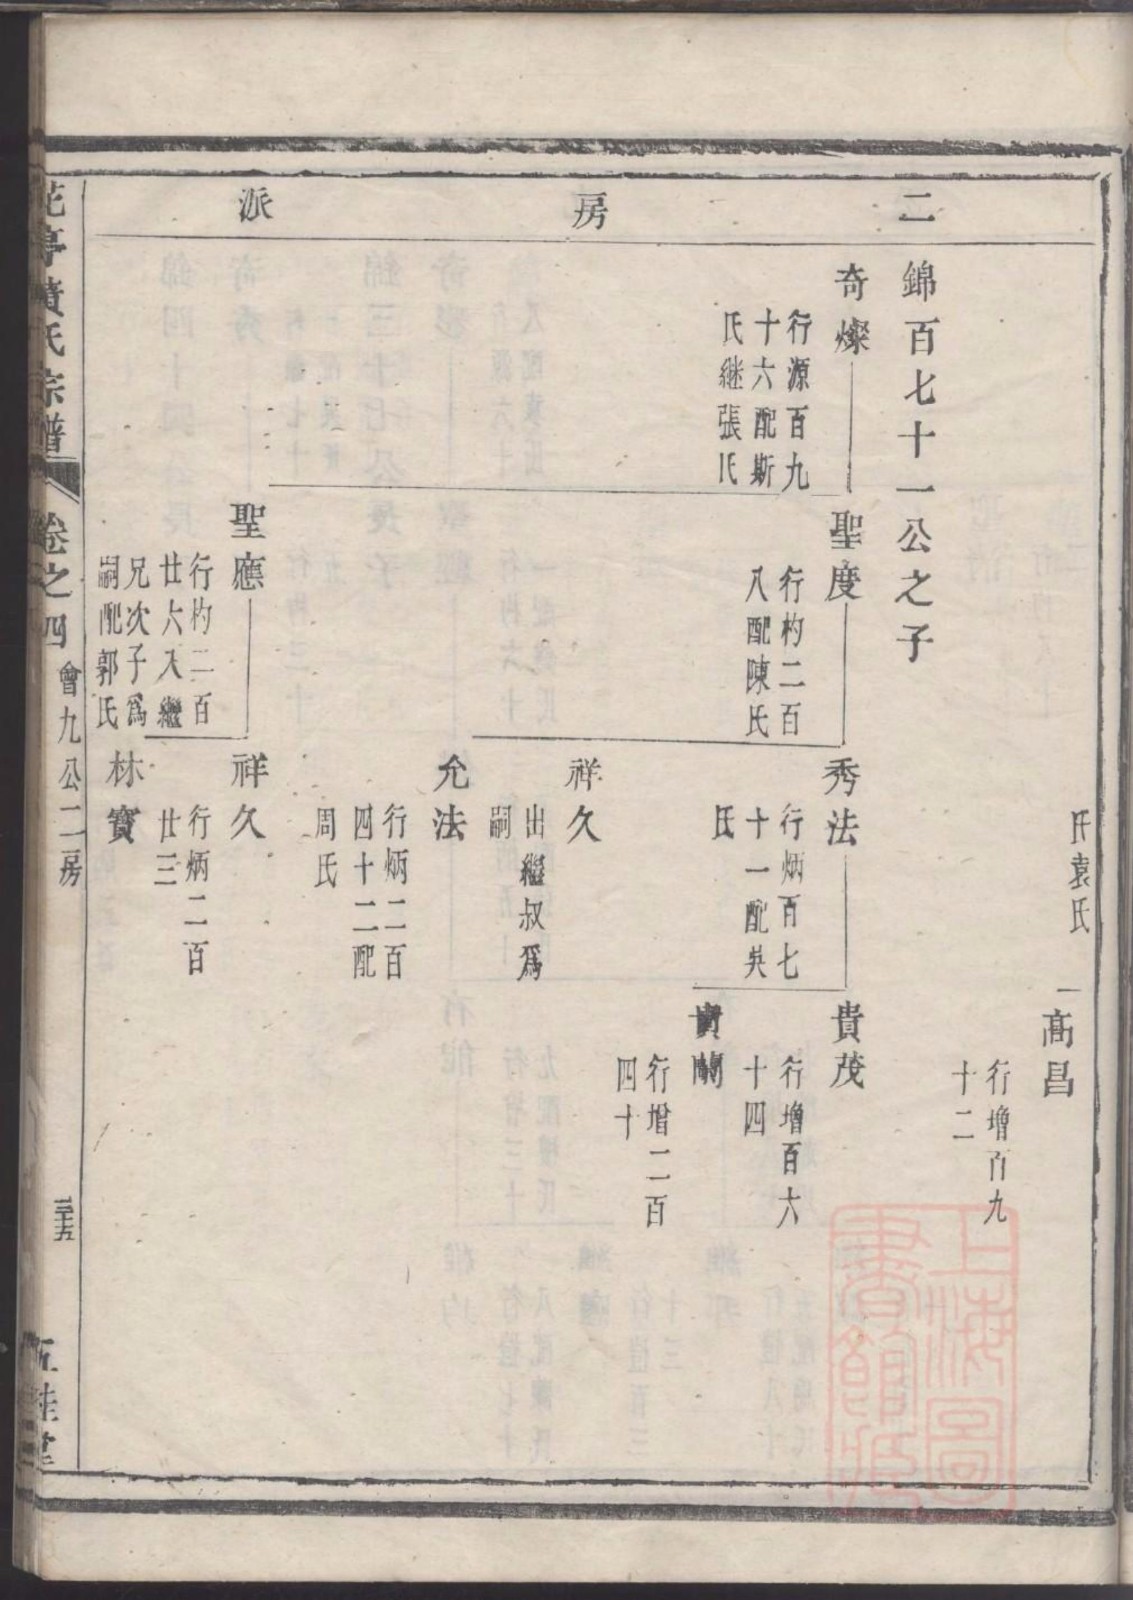 二房派
氏袁氏
高昌
行增百九
十二
錦百七十一公之子
奇燦
行源百九
十六配斯
氏継張氏
聖度
行杓二百
八配陳氏
秀法
行炳百七
十一配吳
氏
貴茂
行增百六
十四
蘭
行增二百
四十
祥久
出繼叔爲
嗣
允法
行炳二百
四十二配
周氏
聖應
行杓二百
廿六入繼
兄次子爲
嗣配郭氏
祥久
行炳二百
廿三
林寶
亭黃氏宗譜
卷之四
會九公二房
三十五
五桂堂
上海圖書館藏